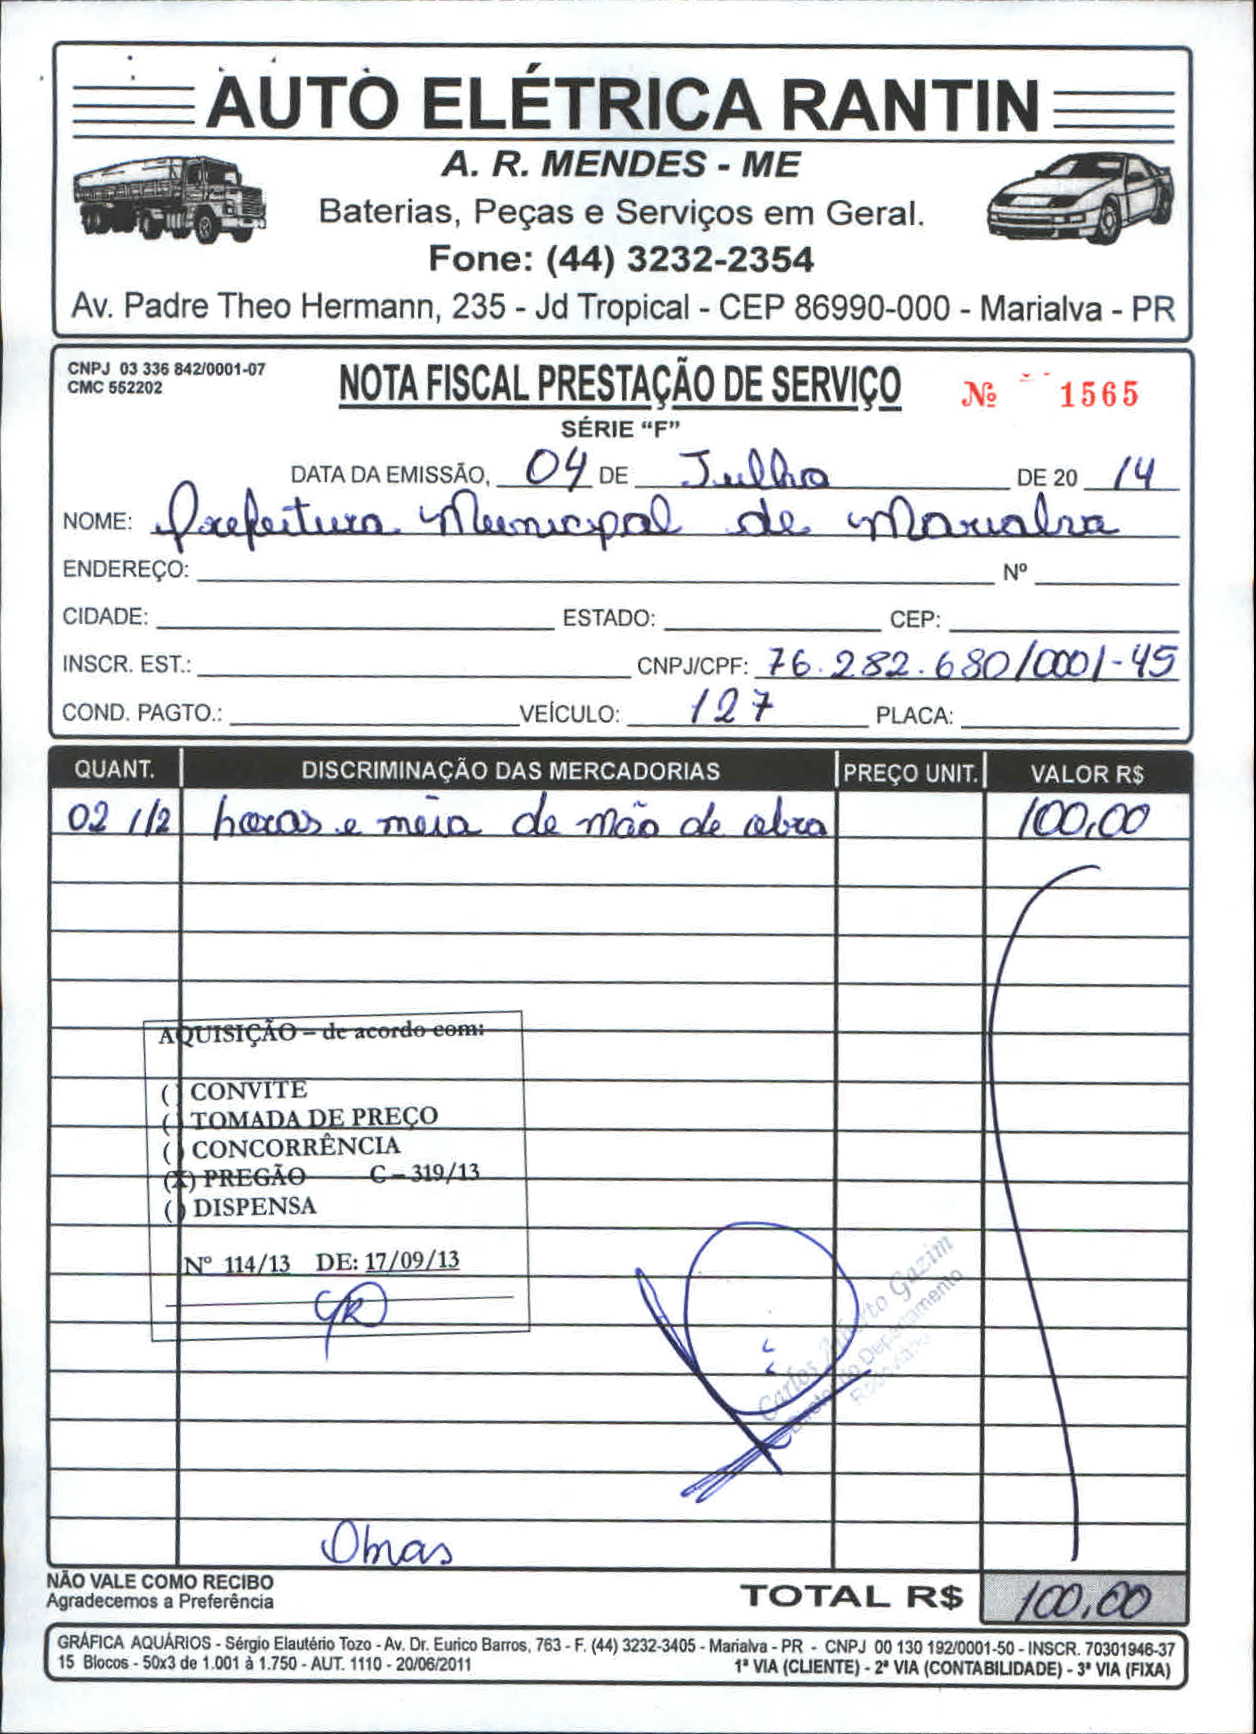 AUTO ELÉTRICA RANTIN
A. R. MENDES - ME
Baterias, Peças e Serviços em Geral.
Fone: (44) 3232-2354
Av. Padre Theo Hermann, 235 - Jd Tropical - CEP 86990-000 - Marialva - PR
CNPJ 03 336 842/0001-07
CMC 552202
NOTA FISCAL PRESTAÇÃO DE SERVIÇO Nº 1565
SÉRIE "F"
DATA DA EMISSÃO, 04 DE Julho DE 20 14
NOME: Prefeitura Municipal de Marialva
ENDEREÇO: Nº
CIDADE: ESTADO: CEP:
INSCR. EST.: CNPJ/CPF: 76.282.680/0001-45
COND. PAGTO.: VEÍCULO: 127 PLACA:
QUANT. DISCRIMINAÇÃO DAS MERCADORIAS PREÇO UNIT. VALOR R$
02 1/2 horas e meia de mão de obra 100,00
AQUISIÇÃO – de acordo com:
( ) CONVITE
( ) TOMADA DE PREÇO
( ) CONCORRÊNCIA
(X) PREGÃO C – 319/13
( ) DISPENSA
Nº 114/13 DE: 17/09/13
Carlos Alberto Gazim
Diretor do Departamento
Obras
NÃO VALE COMO RECIBO
Agradecemos a Preferência
TOTAL R$ 100,00
GRÁFICA AQUÁRIOS - Sérgio Elautério Tozo - Av. Dr. Eurico Barros, 763 - F. (44) 3232-3405 - Marialva - PR - CNPJ 00 130 192/0001-50 - INSCR. 70301946-37
15 Blocos - 50x3 de 1.001 à 1.750 - AUT. 1110 - 20/06/2011 1ª VIA (CLIENTE) - 2ª VIA (CONTABILIDADE) - 3ª VIA (FIXA)